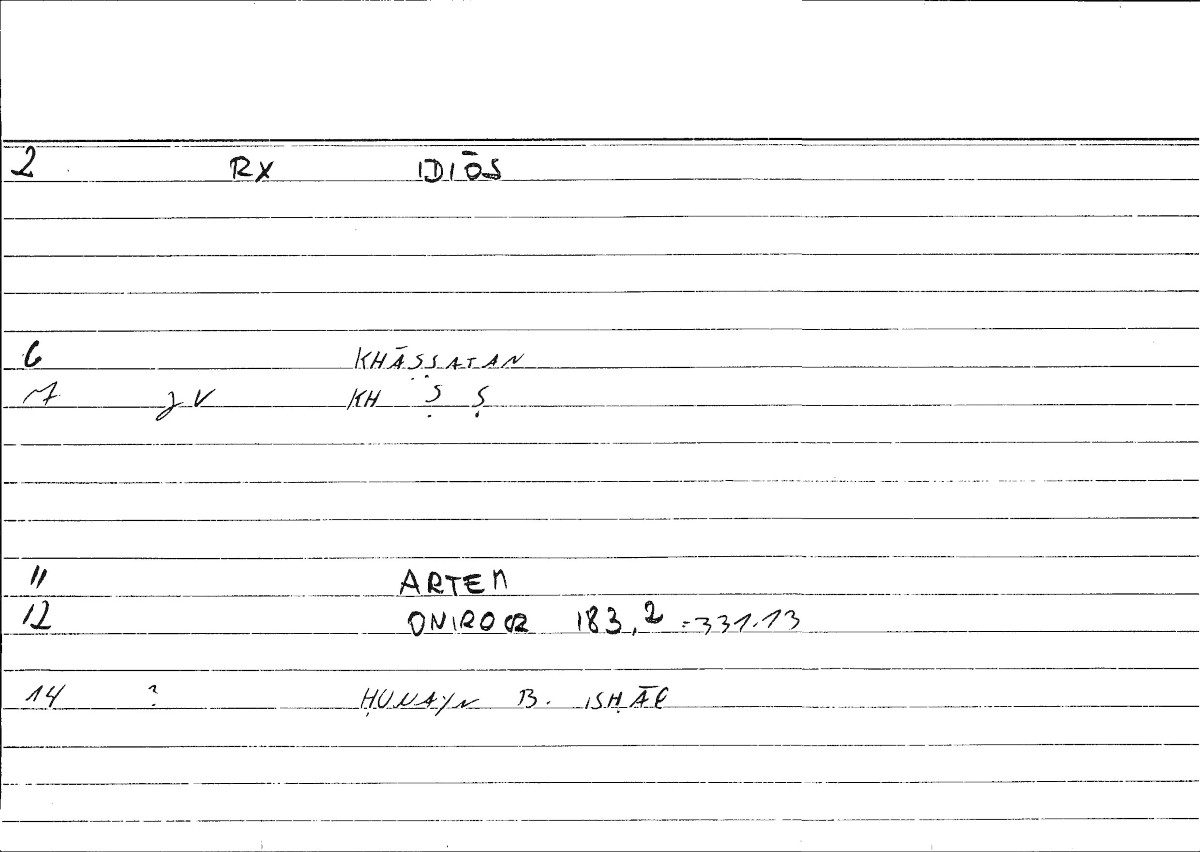 2 RX IDIŌS
6 KHĀṢṢATAN
7 JV KH Ṣ Ṣ
11 ARTEM
12 ONIROCR 183,2 =331.13
14 ? ḤUNAYN B. ISḤĀQ